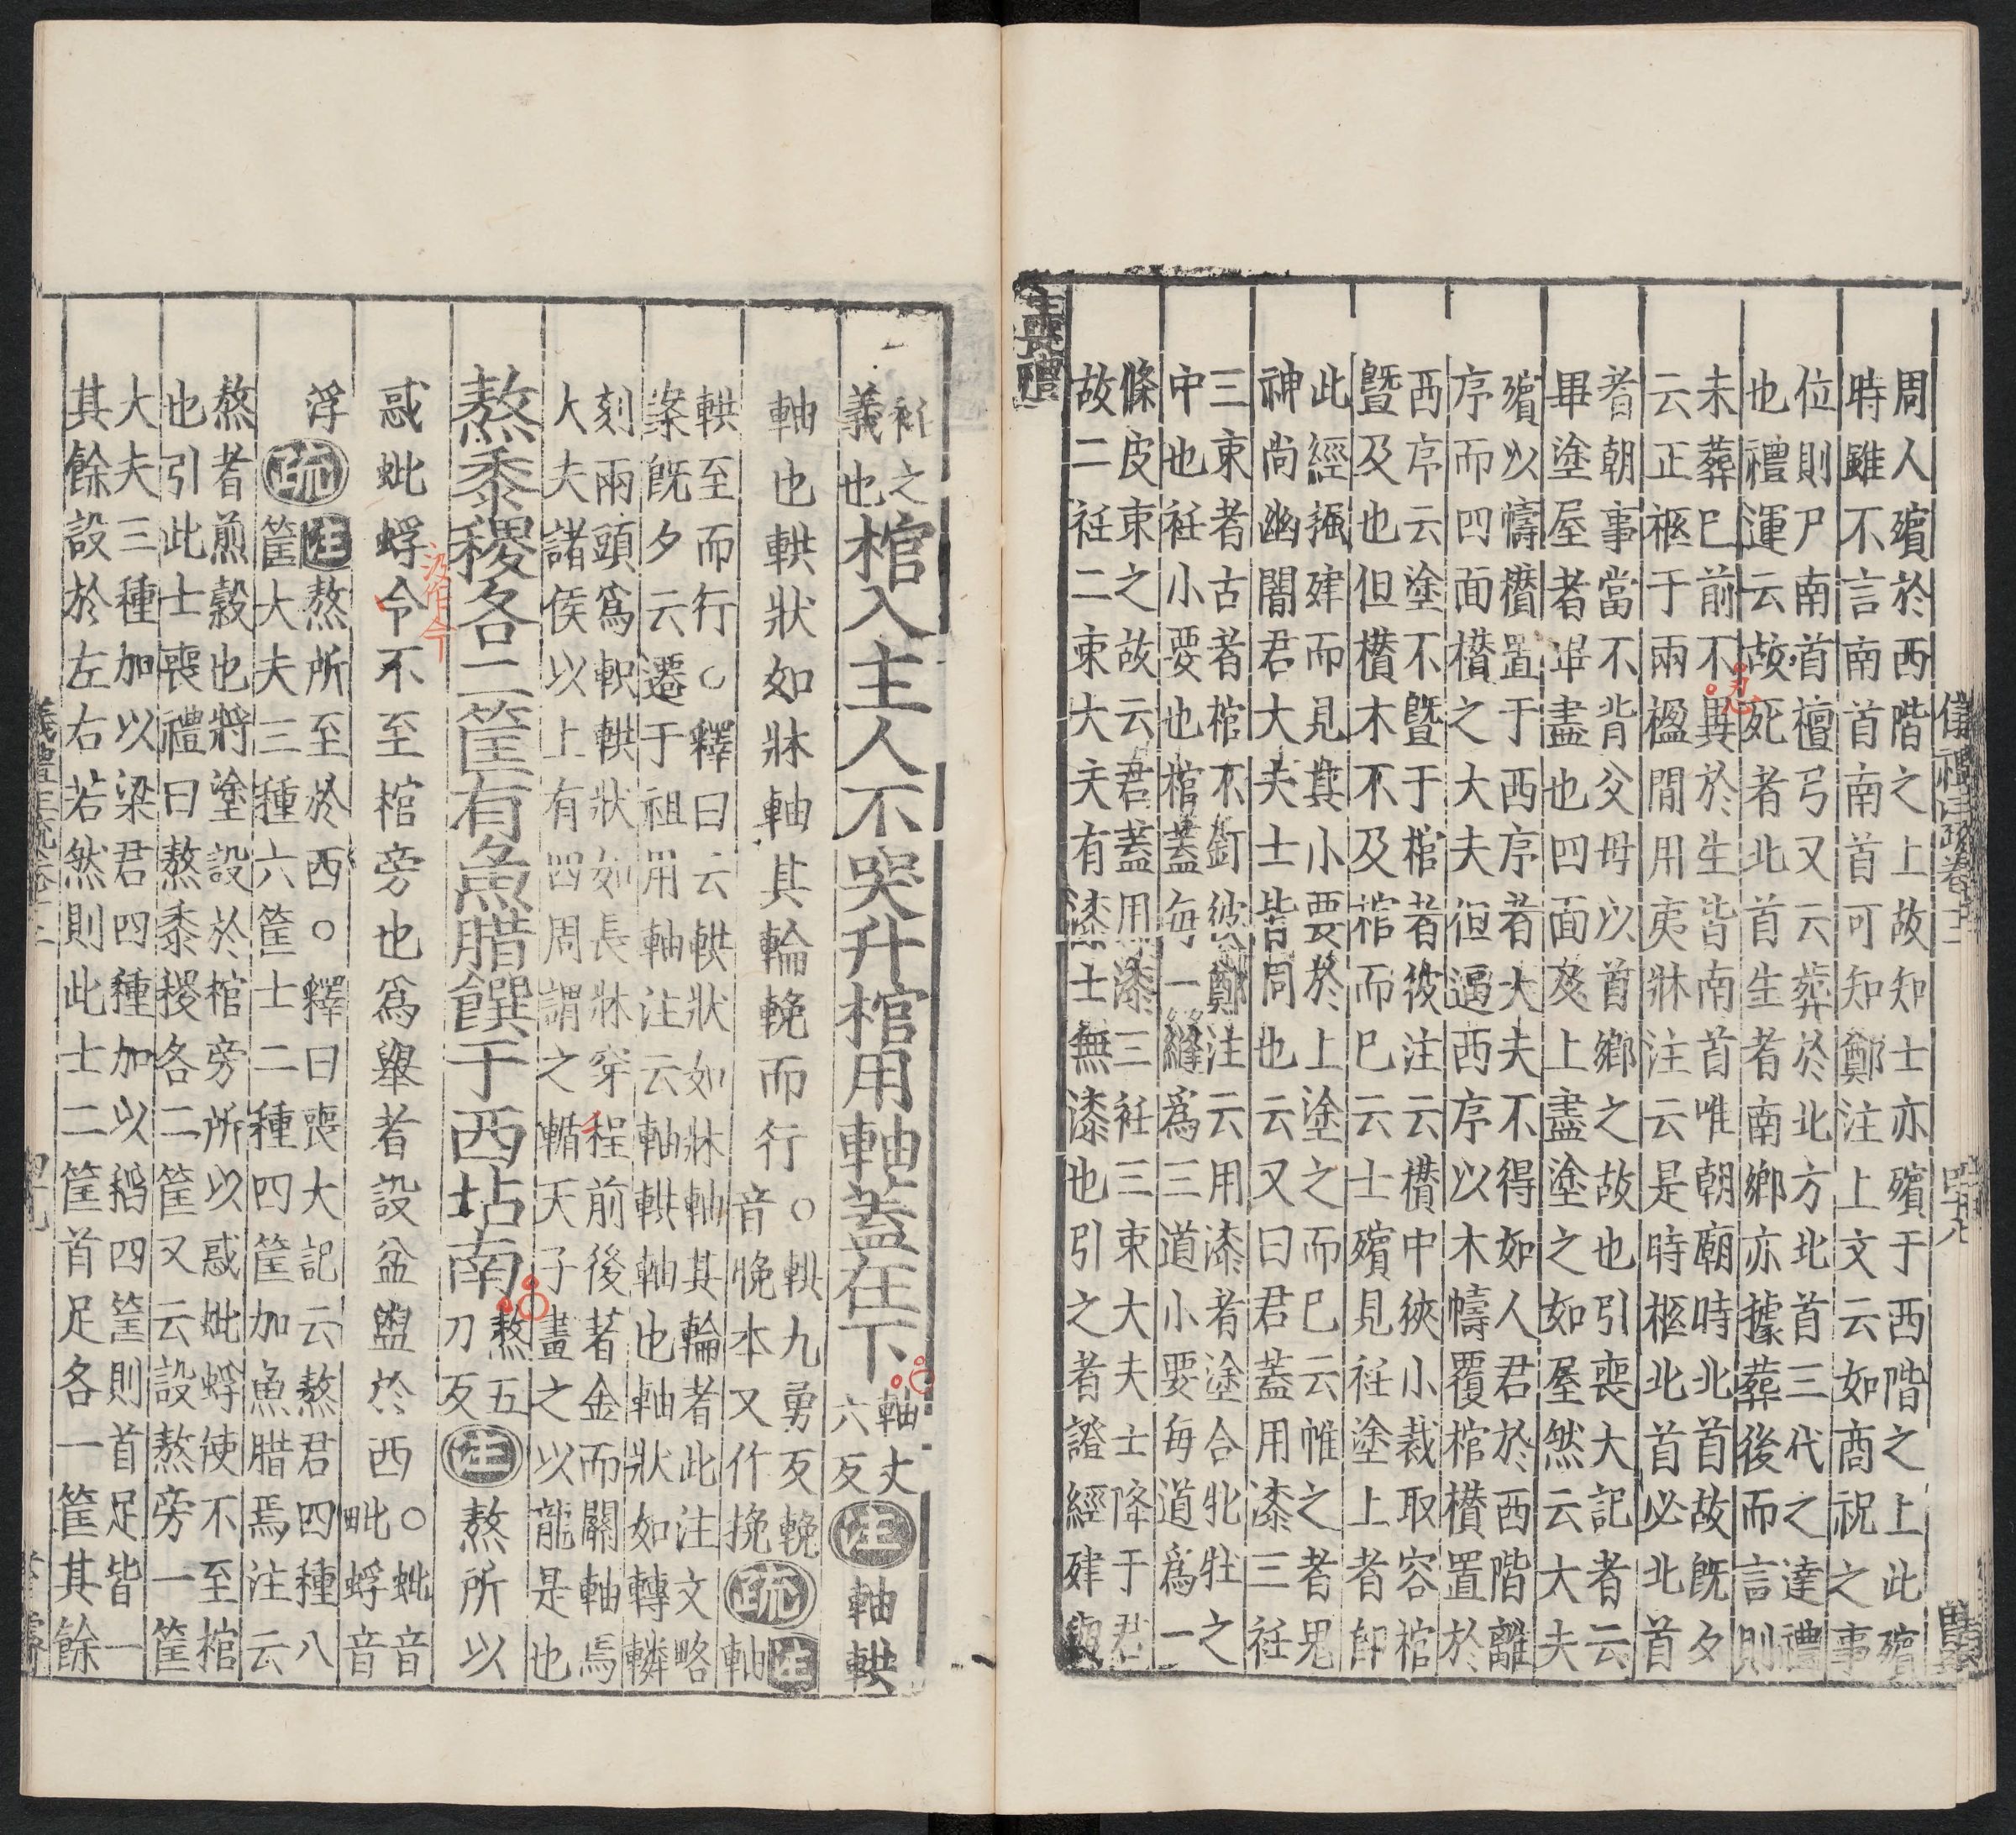 儀禮注疏卷十二
四十九
周人殯於西階之上故知士亦殯于西階之上此殯
時雖不言南首南首可知鄭注上文云如商祝之事
位則尸南首檀弓又云葬於北方北首三代之達禮
也禮運云故死者北首生者南鄉亦據葬後而言則
未葬已前不異於生皆南首唯朝廟時北首故既夕
云正柩于兩楹間用夷牀注云是時柩北首必北首
者朝事當不背父母以首鄉之故也引喪大記者云
畢塗屋者畢盡也四面及上盡塗之如屋然云大夫
殯以幬欑置于西序者大夫不得如人君於西階離
序而四面欑之大夫但逼西序以木幬覆棺欑置於
西序云塗不曁于棺者彼注云欑中狹小裁取容棺
曁及也但欑木不及棺而已云士殯見衽塗上者卽
此經掘肂而見其小要於上塗之而已云帷之者鬼
神尚幽闇君大夫士皆同也云又曰君蓋用漆三衽
三束者古者棺不釘彼鄭注云用漆者塗合牝牡之
中也衽小要也棺蓋每一縫爲三道小要每道爲一
條皮束之故云君蓋用漆三衽三束大夫士降于君
故二衽二束大夫有漆士無漆也引之者證經肂與
士喪禮
衽之義也棺入主人不哭升棺用軸蓋在下軸丈六反注軸輁
軸也輁狀如牀軸其輪輓而行○輁九勇反輓音晚本又作挽疏注軸
輁至而行○釋曰云輁狀如牀軸其輪者此注文略
案旣夕云遷于祖用軸注云軸輁軸也軸狀如轉轔
刻兩頭爲軹輁狀如長牀穿桯前後著金而關軸焉
大夫諸侯以上有四周謂之輴天子畫之以龍是也
熬黍稷各二筐有魚腊饌于西坫南熬五刀反注熬所以
惑蚍蜉令不至棺旁也爲舉者設盆盥於西○蚍音毗蜉音
汲作今
浮疏注熬所至於西○釋曰喪大記云熬君四種八
筐大夫三種六筐士二種四筐加魚腊焉注云
熬者煎穀也將塗設於棺旁所以惑蚍蜉使不至棺
也引此士喪禮曰熬黍稷各二筐又云設熬旁一筐
大夫三種加以梁君四種加以稻四筐則首足皆一
其餘設於左右若然則此士二筐首足各一筐其餘